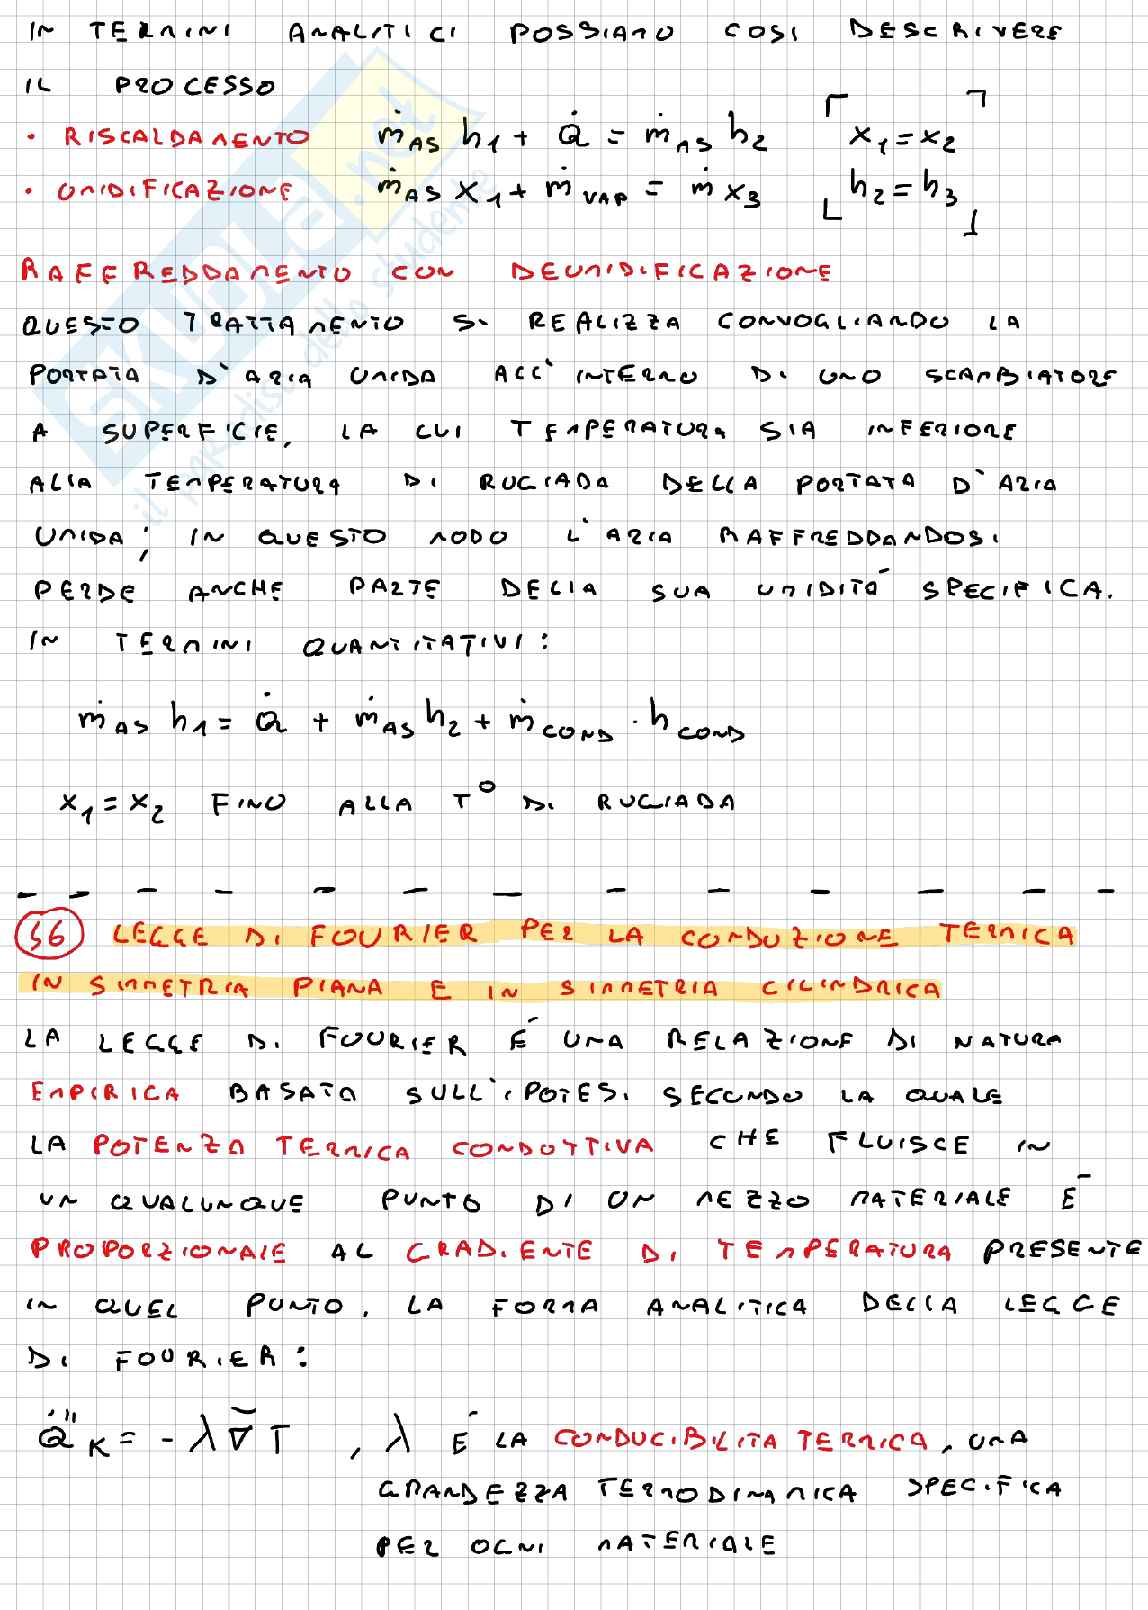 IN TERMINI ANALITICI POSSIAMO COSI DESCRIVERE
IL PROCESSO
• RISCALDAMENTO ṁ_AS h_1 + Q̇ = ṁ_AS h_2 [x_1 = x_2
• UMIDIFICAZIONE ṁ_AS x_1 + ṁ_VAP = ṁ x_3 h_2 = h_3]
RAFFREDDAMENTO CON DEUMIDIFICAZIONE
QUESTO TRATTAMENTO SI REALIZZA CONVOGLIANDO LA
PORTATA D'ARIA UMIDA ALL'INTERNO DI UNO SCAMBIATORE
A SUPERFICIE, LA CUI TEMPERATURA SIA INFERIORE
ALLA TEMPERATURA DI RUGIADA DELLA PORTATA D'ARIA
UMIDA; IN QUESTO MODO L'ARIA RAFFREDDANDOSI
PERDE ANCHE PARTE DELLA SUA UMIDITÓ SPECIFICA.
IN TERMINI QUANTITATIVI:
ṁ_AS h_1 = Q̇ + ṁ_AS h_2 + ṁ_COND · h_COND
x_1 = x_2 FINO ALLA T° DI RUGIADA
36 LEGGE DI FOURIER PER LA CONDUZIONE TERMICA
IN SIMMETRIA PIANA E IN SIMMETRIA CILINDRICA
LA LEGGE DI FOURIER É UNA RELAZIONE DI NATURA
EMPIRICA BASATA SULL'IPOTESI SECONDO LA QUALE
LA POTENZA TERMICA CONDUTTIVA CHE FLUISCE IN
UN QUALUNQUE PUNTO DI UN MEZZO MATERIALE É
PROPORZIONALE AL GRADIENTE DI TEMPERATURA PRESENTE
IN QUEL PUNTO. LA FORMA ANALITICA DELLA LEGGE
DI FOURIER:
Q̇''_K = - λ ∇̄ T , λ É LA CONDUCIBILITA TERMICA, UNA
GRANDEZZA TERMODINAMICA SPECIFICA
PER OGNI MATERIALE
SKUOLA.net
il paradiso dello studente